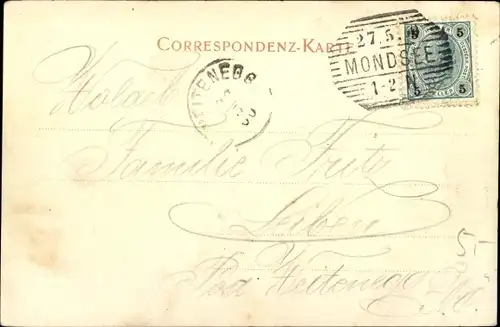 CORRESPONDENZ-KARTE
27.5.
MONDSEE
1-2N
5 5
5 5
WEITENEGG
Familie Fritz
Leiben
Post Weitenegg
N.Ö.